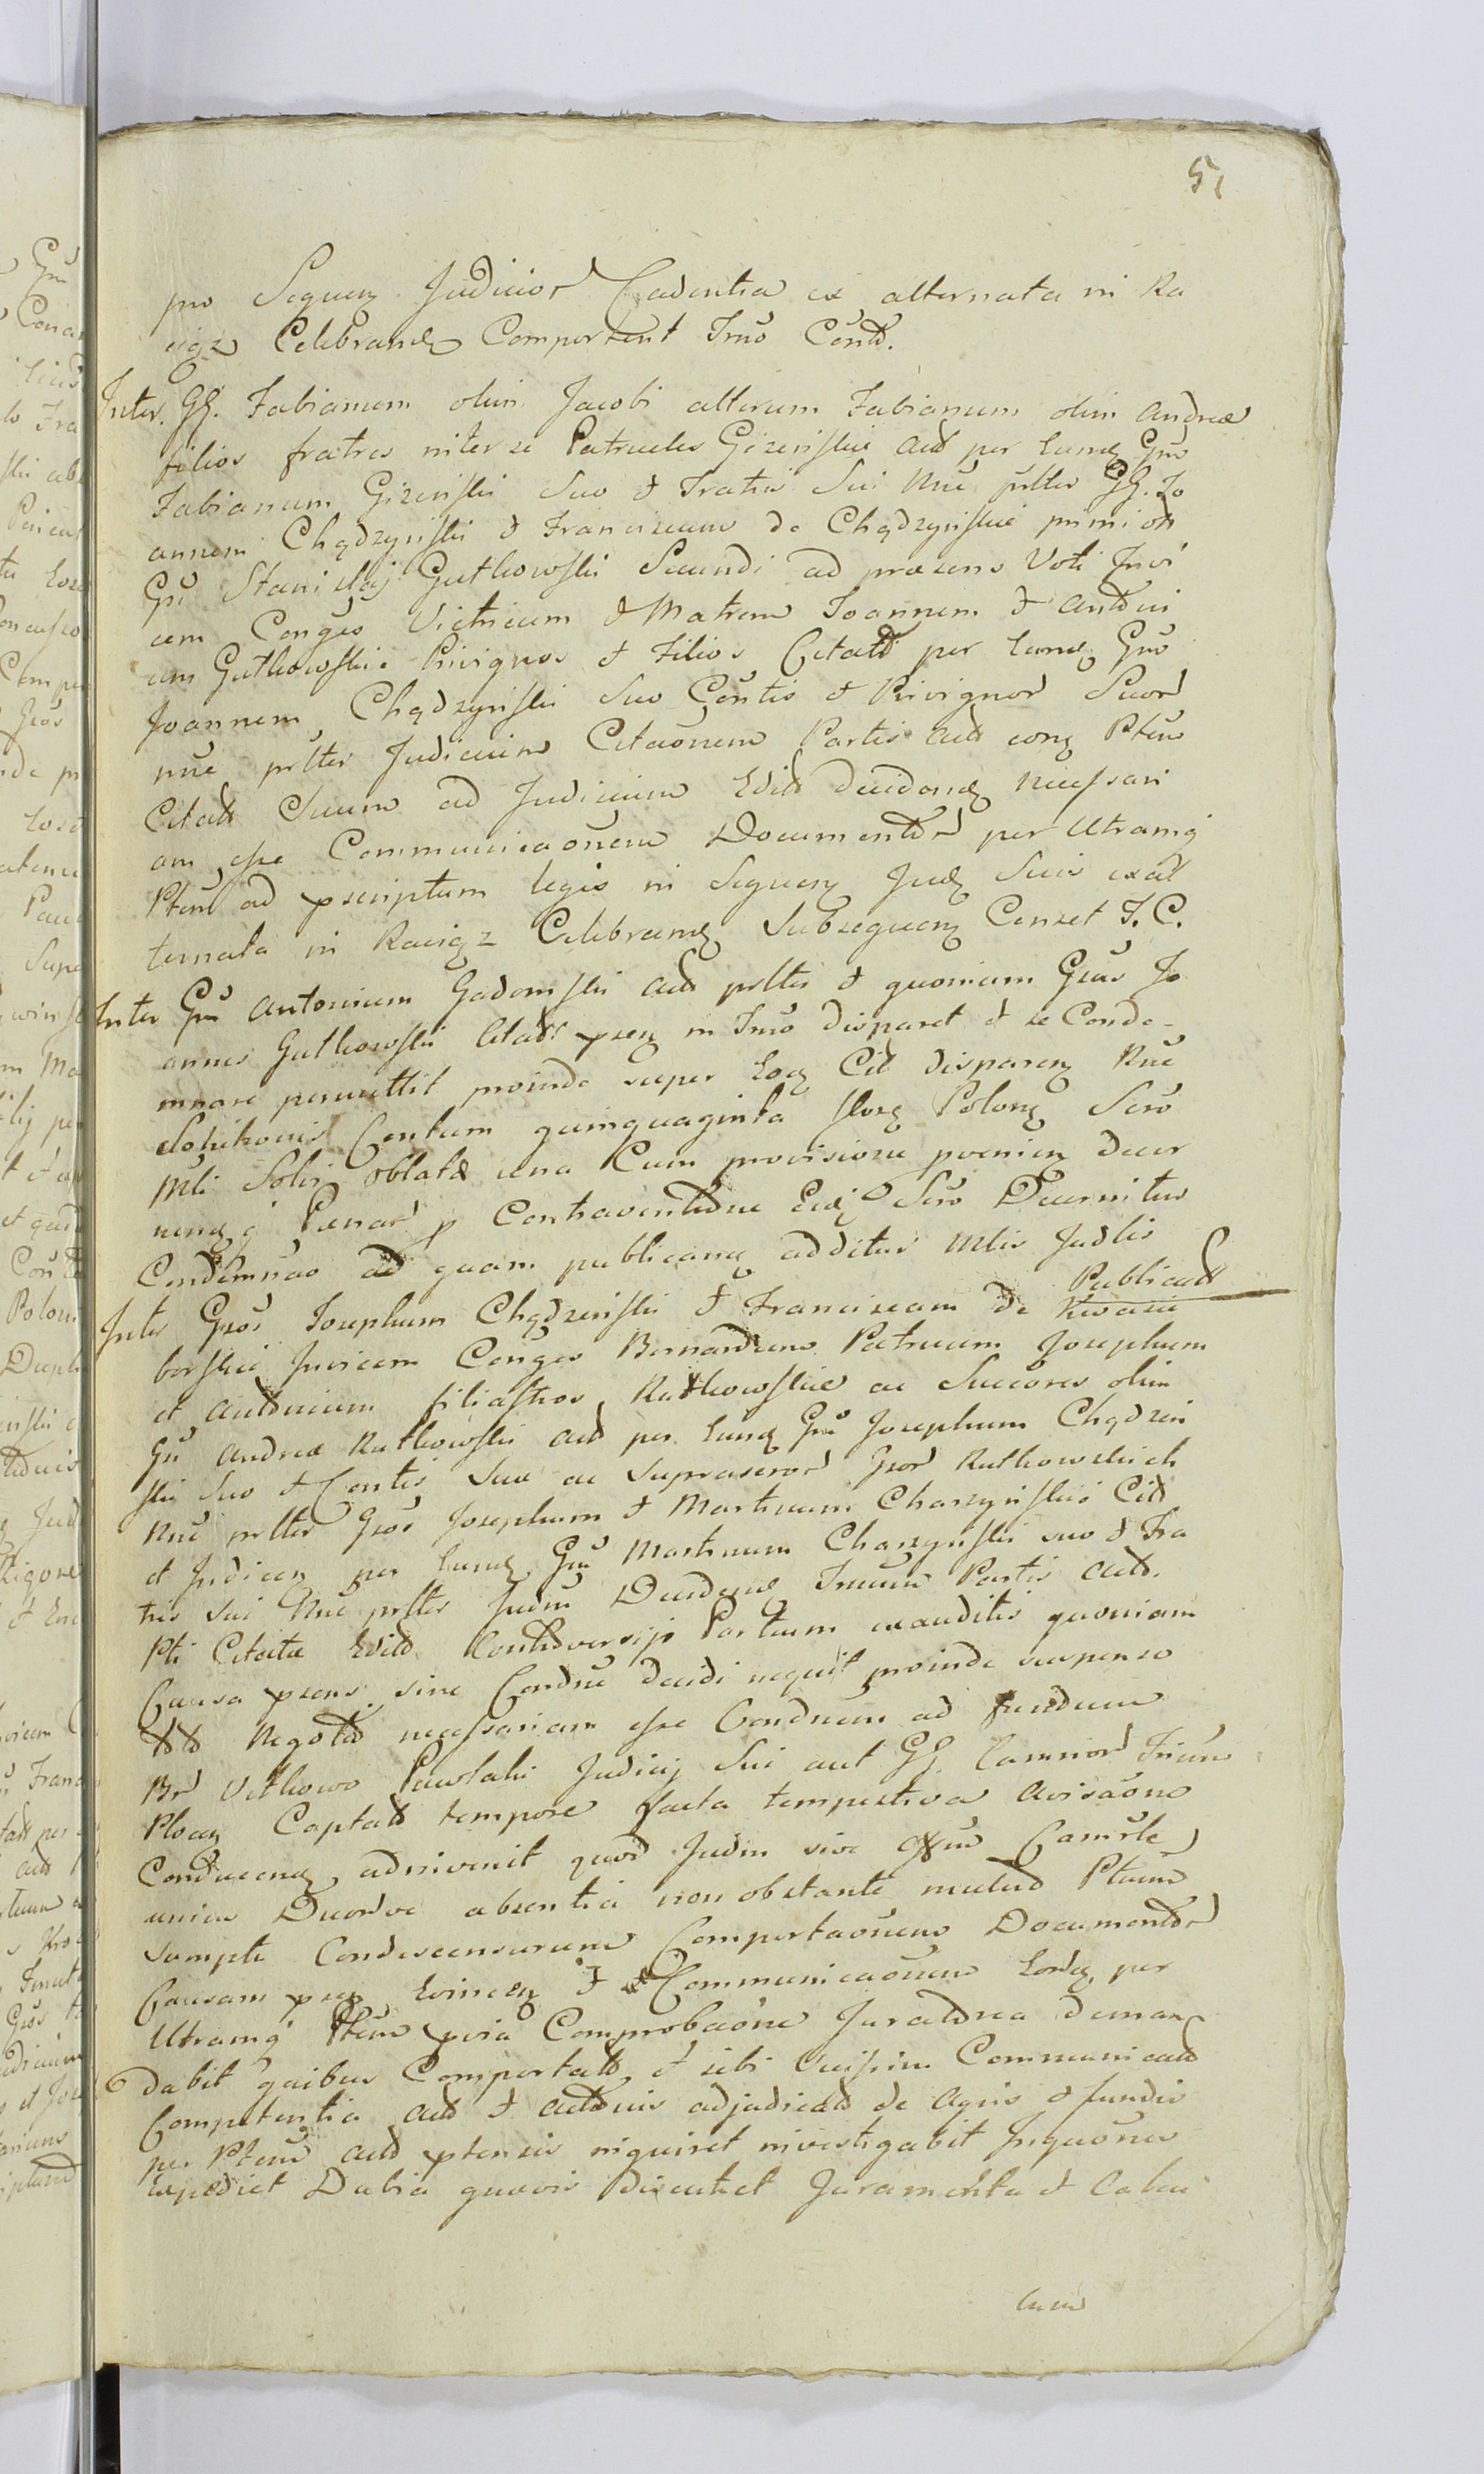 51
pro Sequen Judicior Cadentia ex alternata in Ra
ciąz Celebrand Comportent Trno Contt.
Inter GG. Fabianum olim Jacobi alterum Fabianum olim Andreæ
filios fratres inter se Patrueles Gizenskie Actt per Eund Gnu
Fabianum Gizenski Suo & Fratris Sui Nne prlter GG. Jo
annem Chądzynski & Franciscam de Chądzynskie primi olim
Gni Stanislaj Gutkowski Secundi ad præsens Voti Invi
cem Conges Vitricum & Matrem Joannem & Antoni
um Gutkowskie Privignos & Filios Citatt per Eund Gnu
Joannem Chądzynski Suo Contis & Privignor Suor
nne prlter Judicium Citaonem Partis Actt eorq Ptem
Citatt Suum ad Judicium Editt Decidend necessari
am esse Communicaonem Documentor per Utramq
Ptem ad pscriptum legis in Sequen Jud Suis exal
ternata in Raciąz Celebrand Subsequen Censet T. C.
Inter Gnu Antonium Gadomski Actt prlter & quoniam Gnus Jo
annes Gutkowski Citatt psen in Trno disparet & se Conde-
mnare permittit proinde super Eoq Citt disparen Nne
Solutionis Centum quinquaginta flor Polon Sero
Mli Solis oblatæ una Cum provisione provenien Decer
nend q Pænar p Contraventione Eid Sero Decernitur
Condemnao ad quam publicand additur Mlis Judlis
Publicatt
Inter Gnos Josephum Chądzenski & Franciscam de Kwasie
borskie Invicem Conges Bernardum Patruum Josephum
et Antonium filiastros Rutkowskie ac Succores olim
Gni Andreæ Rutkowski Actt per Eund Gnu Josephum Chądzen
ski Suo & Contis Suæ ac Suprascror Gnor Rutkowskich
Nne prlter Gnos Josephum & Martinum Charzynskie Citt
et Judicen per Eund Gnu Martinum Charzynski suo & Fra
tris Sui Nne prlter Judm Decidend Trmum Partis Actt.
Pti Citatæ Editt Controversijs Partium exauditis quoniam
Causa psens sine Condne decidi nequit proinde suspenso
toto Negotio necessariam esse Condnem ad fundum
Br Vitkowo Pawlaki Judicij Sui aut GG Camrior Trium
Plocen Captatt tempore facta tempestiva Avisaone
Conducend adinvenit quod Judm sive Offm Camrle
unius Duorve absentia non obstante mutuo Ptium
sumptu Condescensurum Comportaonem Documentor
Causam psen Evincen & Communicaonem Eord per
Utramq Ptem pvia Comprobaone Juratoria deman
dabit quibus Comportatt, & sibi Vicissim Communicatt
Competentia Actt & Actoris adjudicatt de Agris & fundis
per Ptem Actt ptensis inquiret investigabit Inquones
Expediet Dubia quævis Discutiet Juramenta & Calcu